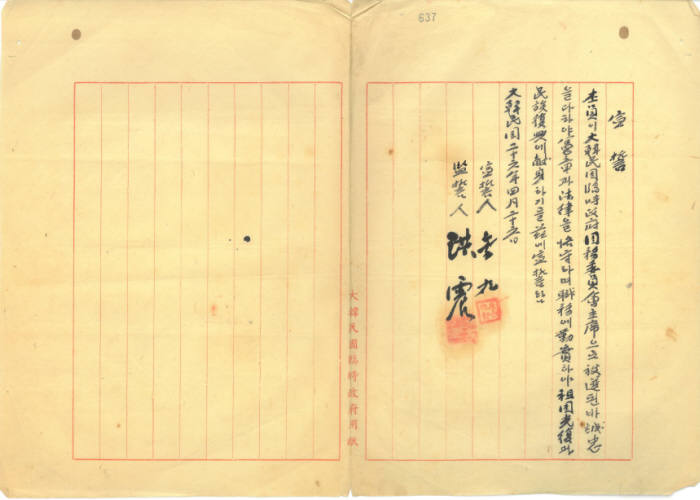 637
宣誓
本員이大韓民国臨時政府国務委員會主席으로被選된바誠忠
을다하야憲章과法律을恪守하며職務에勤奮하야祖国光復과
民族復興에献身하기를玆에宣誓하나
大韓民国二十六年四月二十五日
宣誓人 金九
監誓人 洪震
大韓民國臨時政府用紙